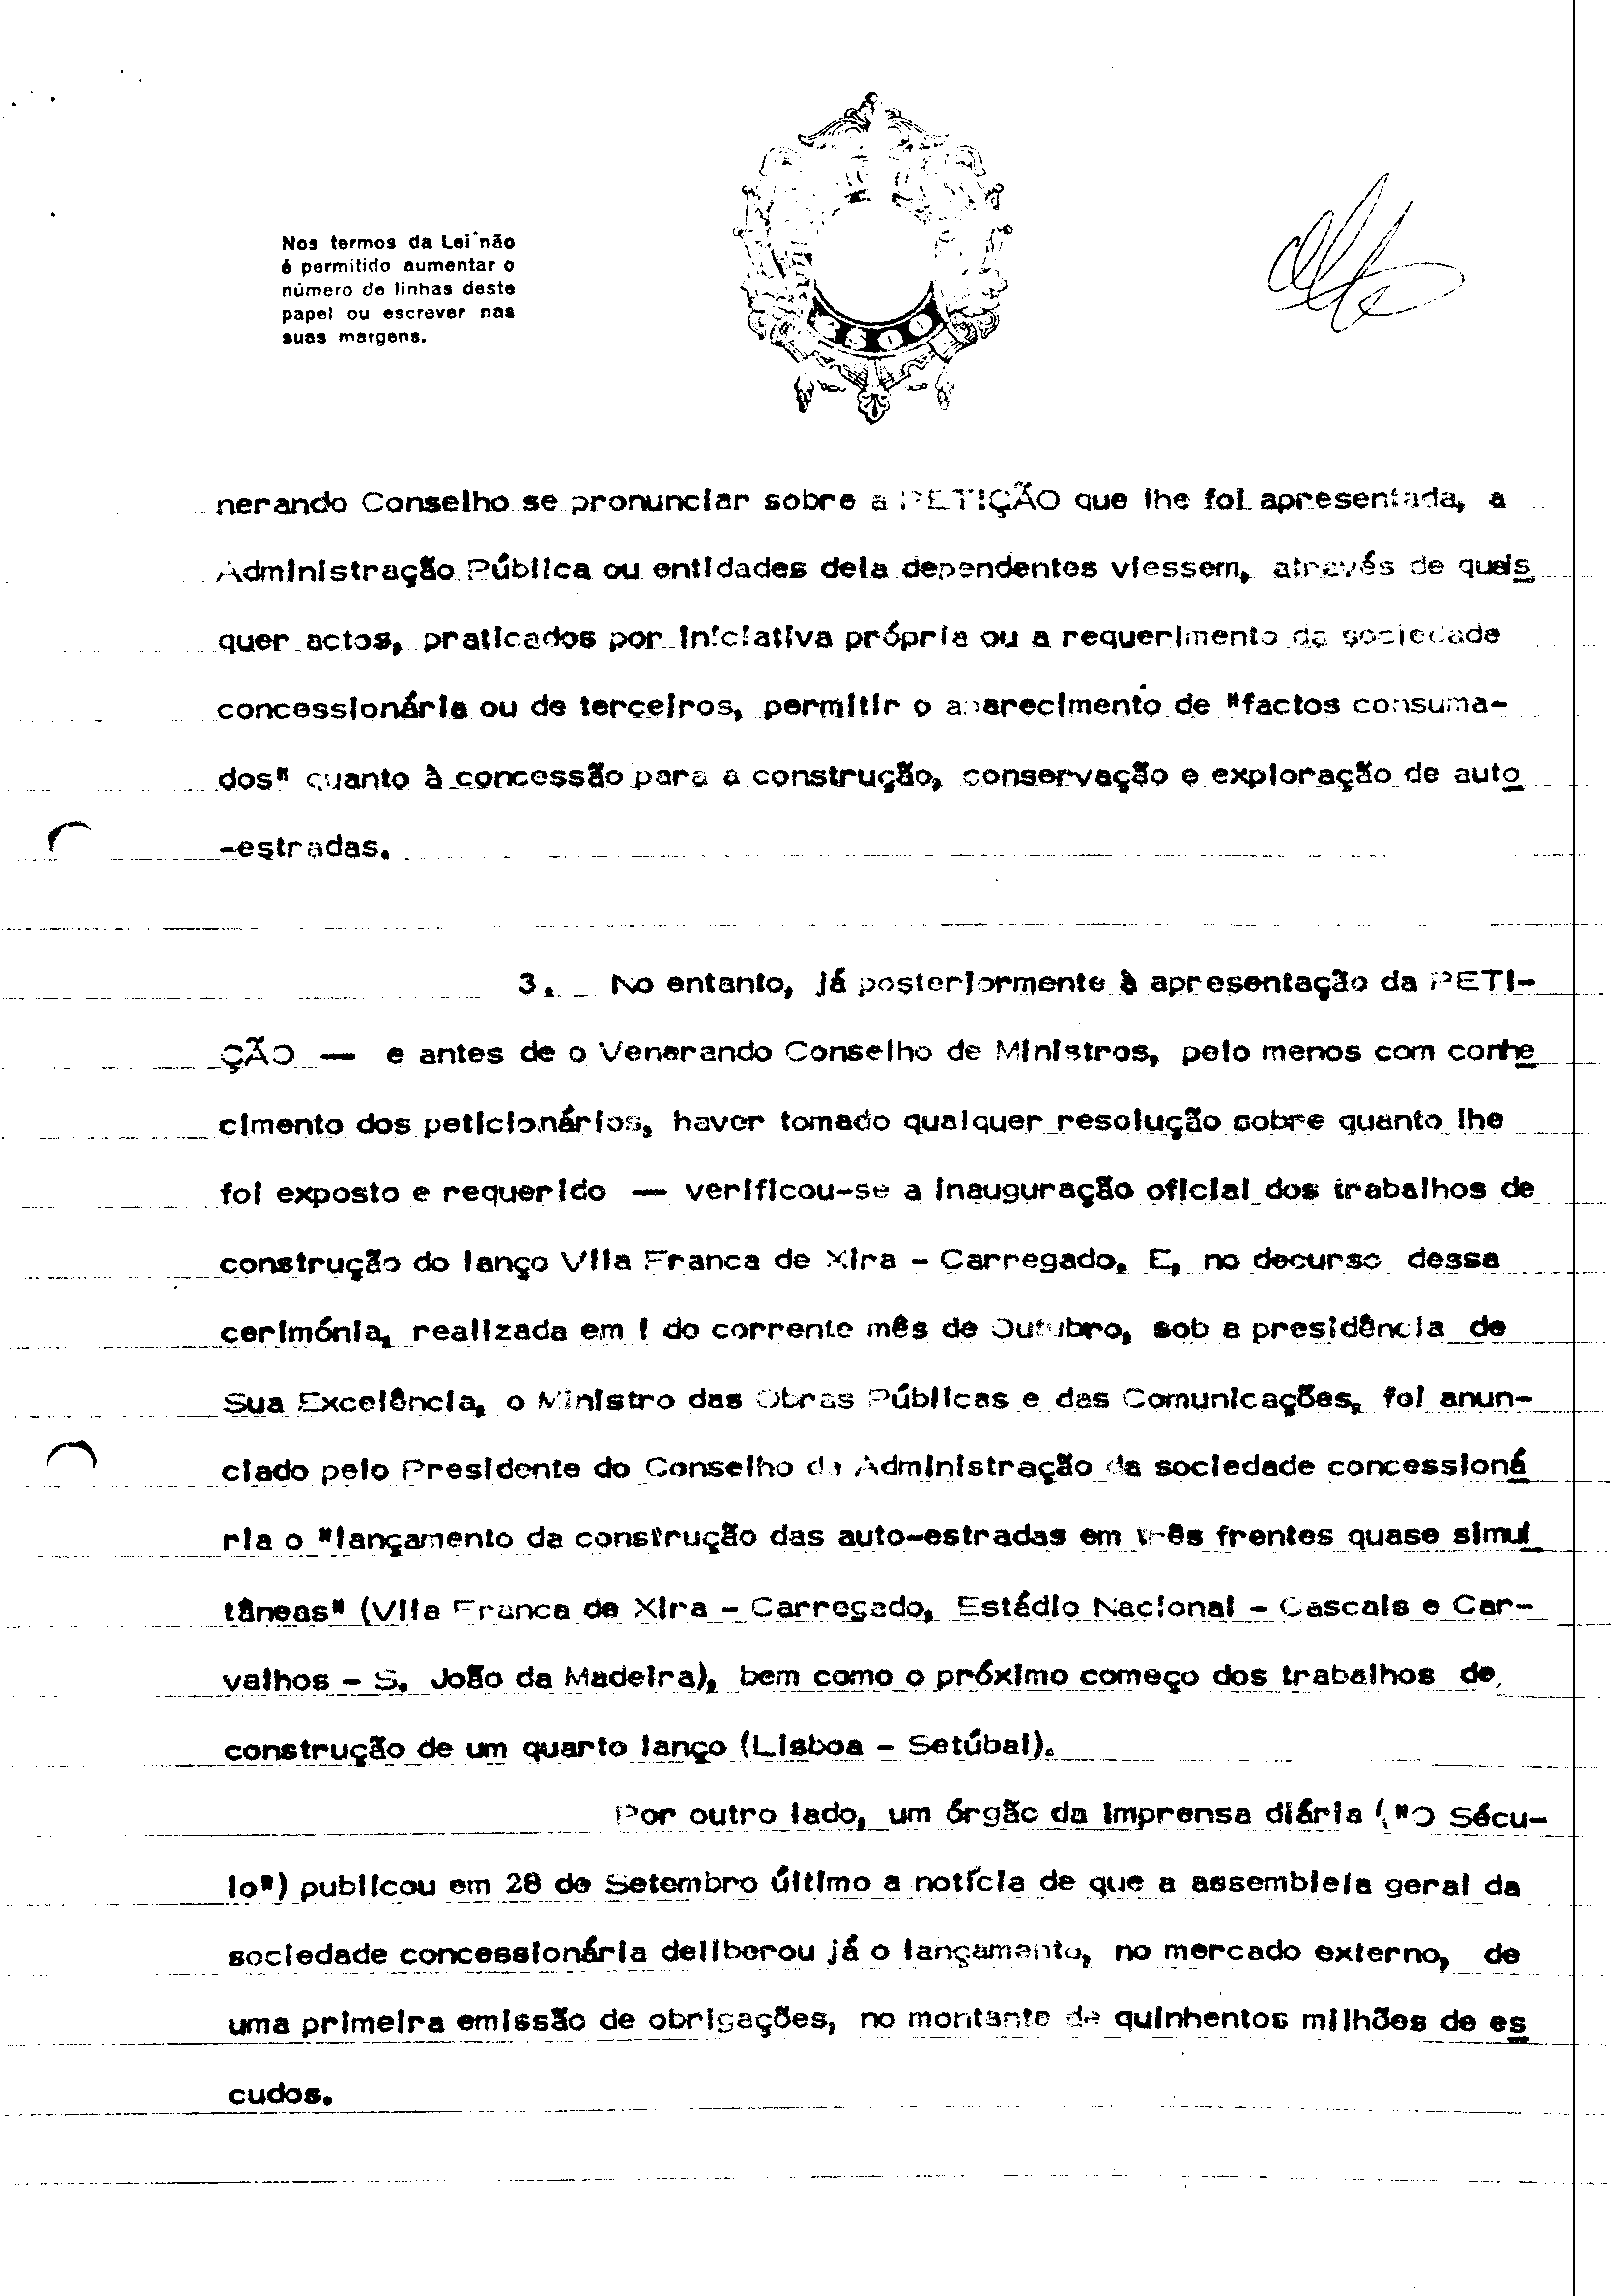 Nos termos da Lei não
é permitido aumentar o
número de linhas deste
papel ou escrever nas
suas margens.
nerando Conselho se pronunciar sobre a PETIÇÃO que lhe foi apresentada, a
Administração Pública ou entidades dela dependentes viessem, através de quais
quer actos, praticados por iniciativa própria ou a requerimento da sociedade
concessionária ou de terceiros, permitir o aparecimento de "factos consuma-
dos" quanto à concessão para a construção, conservação e exploração de auto
-estradas.
3. No entanto, já posteriormente à apresentação da PETI-
ÇÃO — e antes de o Venerando Conselho de Ministros, pelo menos com conhe
cimento dos peticionários, haver tomado qualquer resolução sobre quanto lhe
foi exposto e requerido — verificou-se a inauguração oficial dos trabalhos de
construção do lanço Vila Franca de Xira - Carregado. E, no decurso dessa
cerimónia, realizada em 1 do corrente mês de Outubro, sob a presidência de
Sua Excelência, o Ministro das Obras Públicas e das Comunicações, foi anun-
ciado pelo Presidente do Conselho de Administração da sociedade concessioná
ria o "lançamento da construção das auto-estradas em três frentes quase simul
tâneas" (Vila Franca de Xira - Carregado, Estádio Nacional - Cascais e Car-
valhos - S. João da Madeira), bem como o próximo começo dos trabalhos de
construção de um quarto lanço (Lisboa - Setúbal).
Por outro lado, um órgão da imprensa diária ("O Sécu-
lo") publicou em 28 de Setembro último a notícia de que a assembleia geral da
sociedade concessionária deliberou já o lançamento, no mercado externo, de
uma primeira emissão de obrigações, no montante de quinhentos milhões de es
cudos.